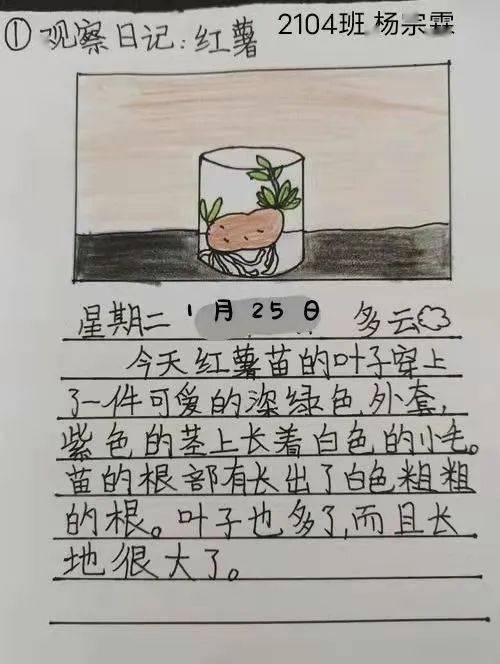 ①观察日记:红薯 2104班 杨宗霖
星期二 1月25日 多云
今天红薯苗的叶子穿上
了一件可爱的深绿色外套,
紫色的茎上长着白色的小毛。
苗的根部有长出了白色粗粗
的根。叶子也多了,而且长
地很大了。